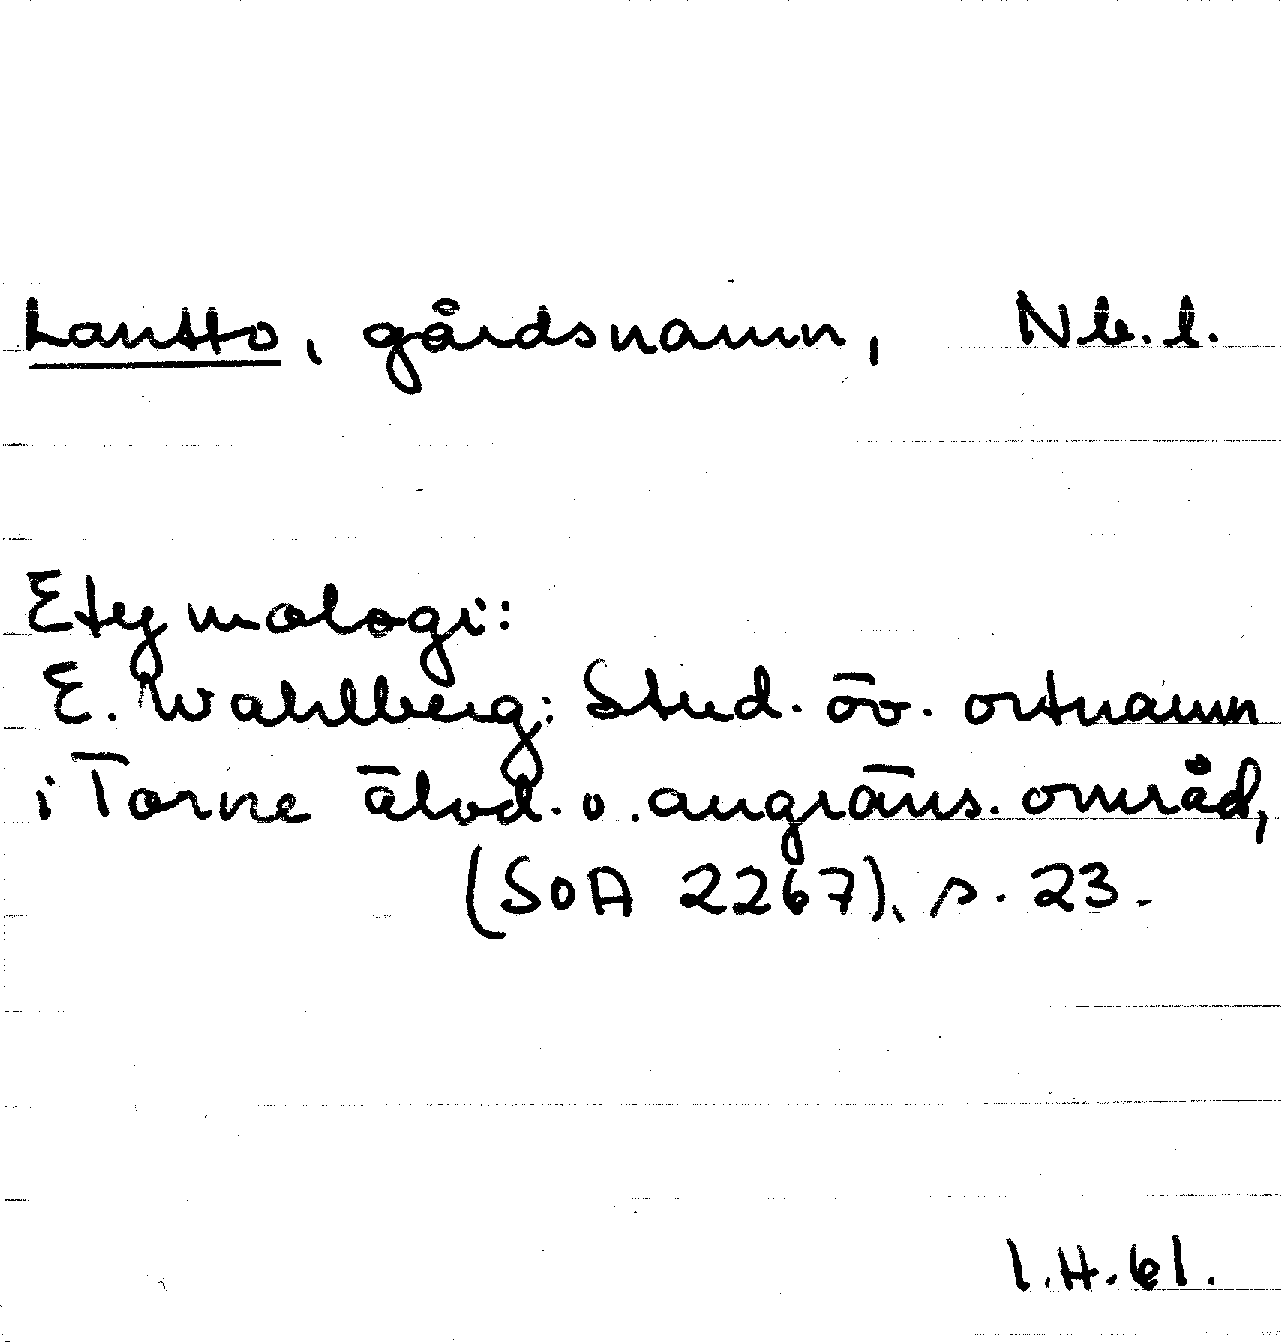 Lantto, gårdsnamn, Nb. l.
Etymologi:
E. Wahlberg: Stud. öv. ortnamn
i Torne älvd. o. angräns. områd,
(SOA 2267), s. 23.
I.H. 61.